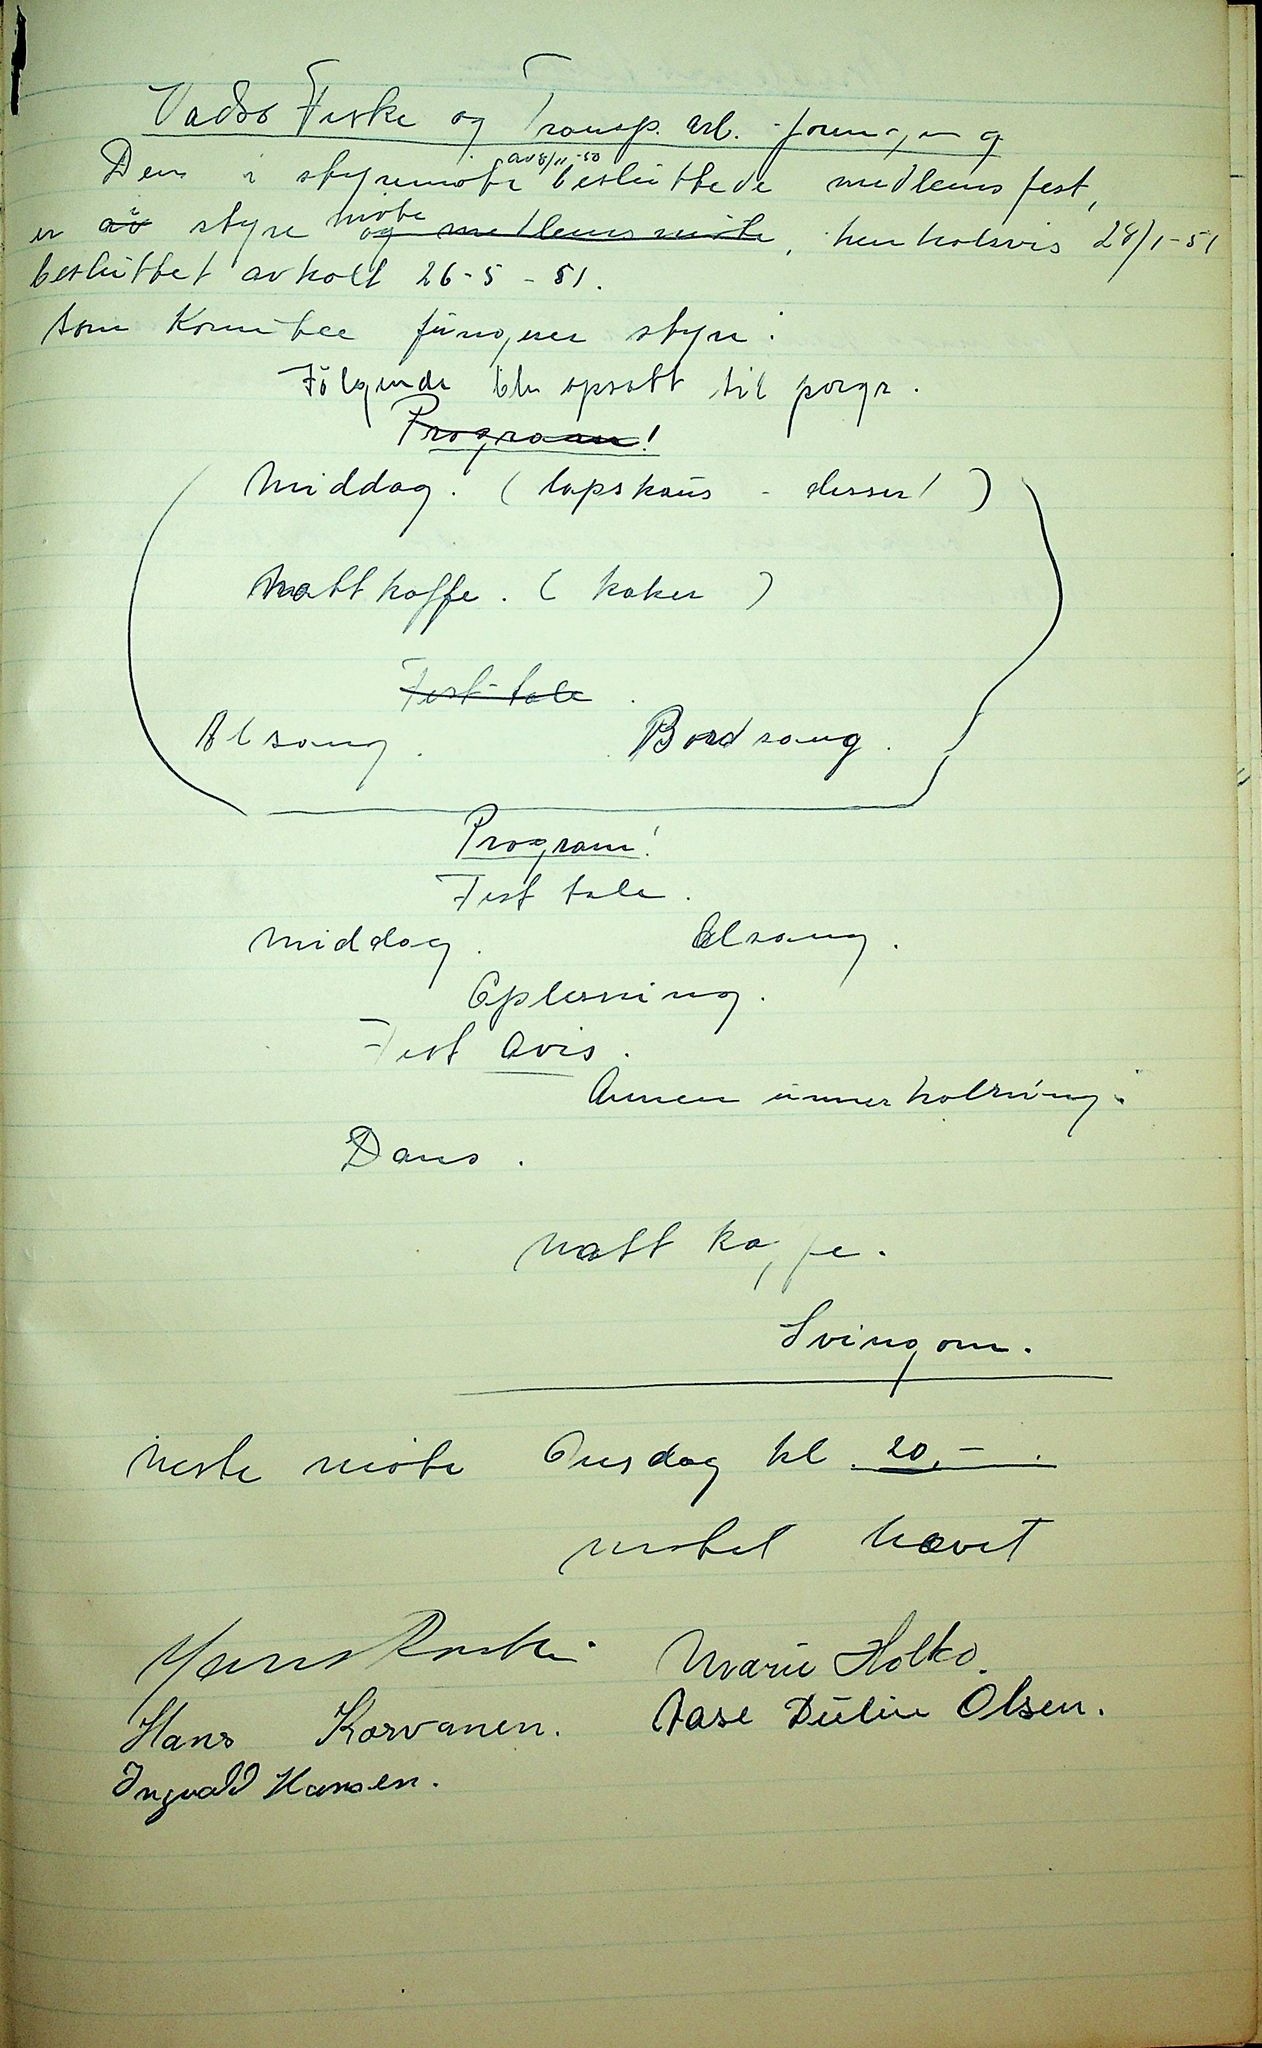 Vadsø Fiske og Transp. arb. forening
av 8/11-50
Den i styremøte besluttede medlemsfest,
møte
er av styre og medlemsmøte, henholsvis 28/1-51
besluttet avholt 26-5-51.
Som Komitee fungerer styre.
Følgende ble opsatt til porgr.
Program!
Middag. (lapskaus - desser)
Nattkaffe. (kaker)
Fest-tale.
Alsang. Bordsang.
Program!
Fest tale.
Middag. Alsang.
Oplesning.
Fest avis.
Annen unnerholning.
Dans.
Natt kaffe.
Svingom.
Neste møte Onsdag kl. 20,-.
Møtet hævet
Hans Marie Holko.
Hans Korvanen. Aase Dulin Olsen.
Ingvald Hansen.